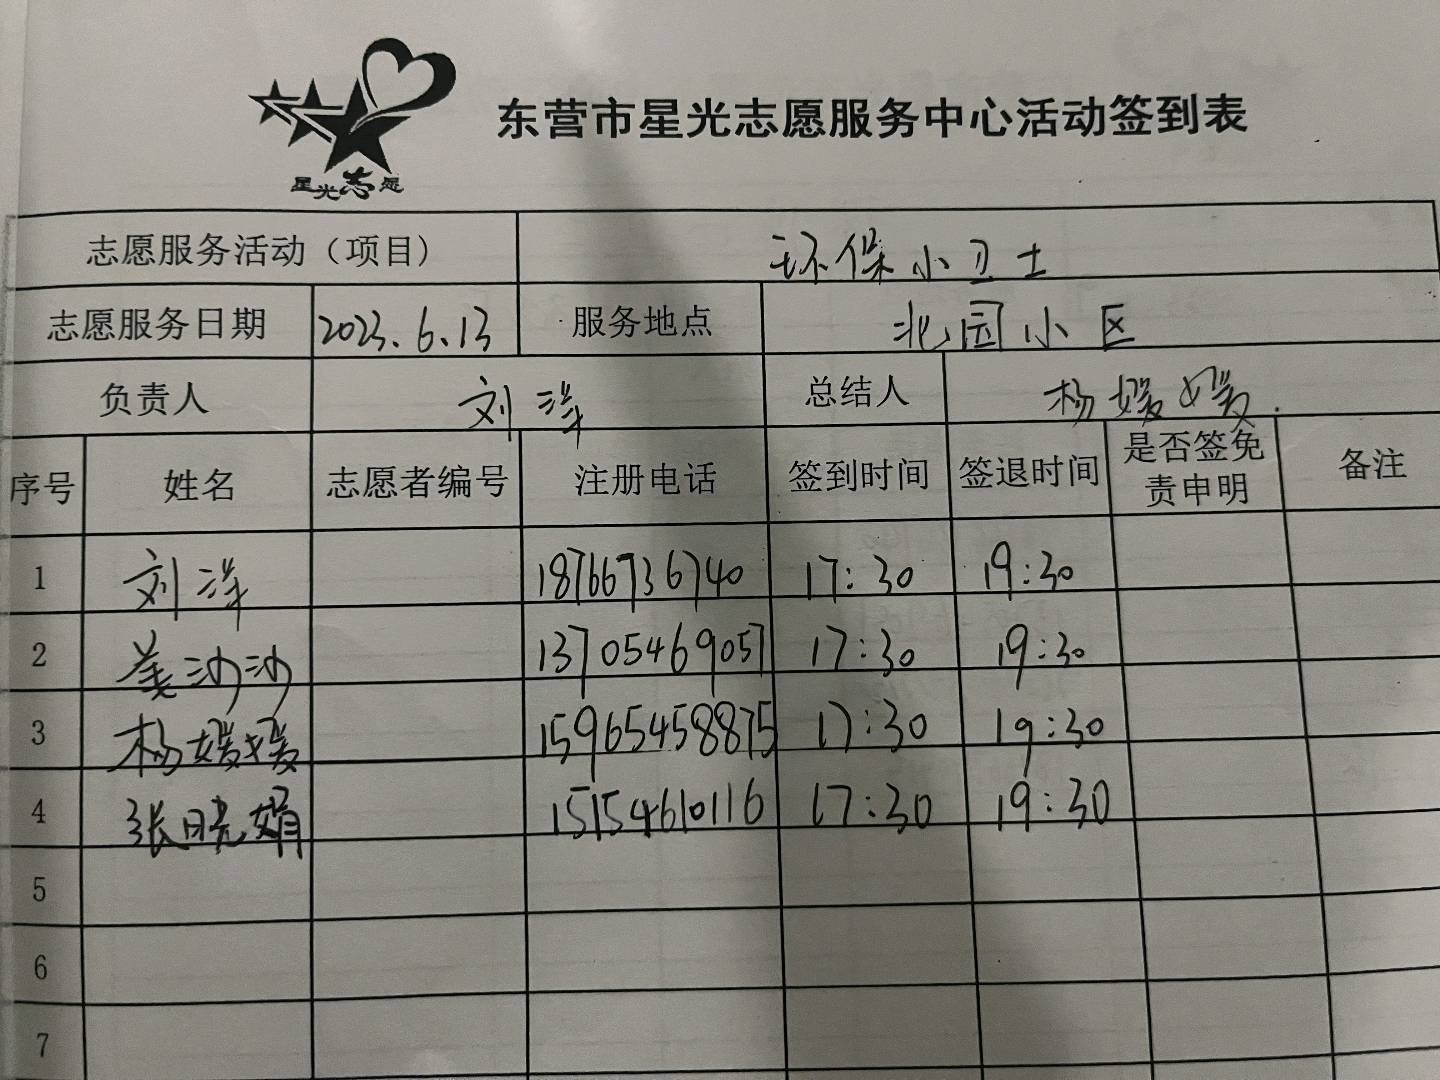 星光志愿
东营市星光志愿服务中心活动签到表
志愿服务活动（项目） 环保小卫士
志愿服务日期 2023.6.13 服务地点 北园小区
负责人 刘洋 总结人 杨媛媛.
序号 姓名 志愿者编号 注册电话 签到时间 签退时间 是否签免责申明 备注
1 刘洋 18766736740 17:30 19:30
2 姜沙沙 13705469057 17:30 19:30
3 杨媛媛 15965458875 17:30 19:30
4 张晓娟 15154610116 17:30 19:30
5
6
7